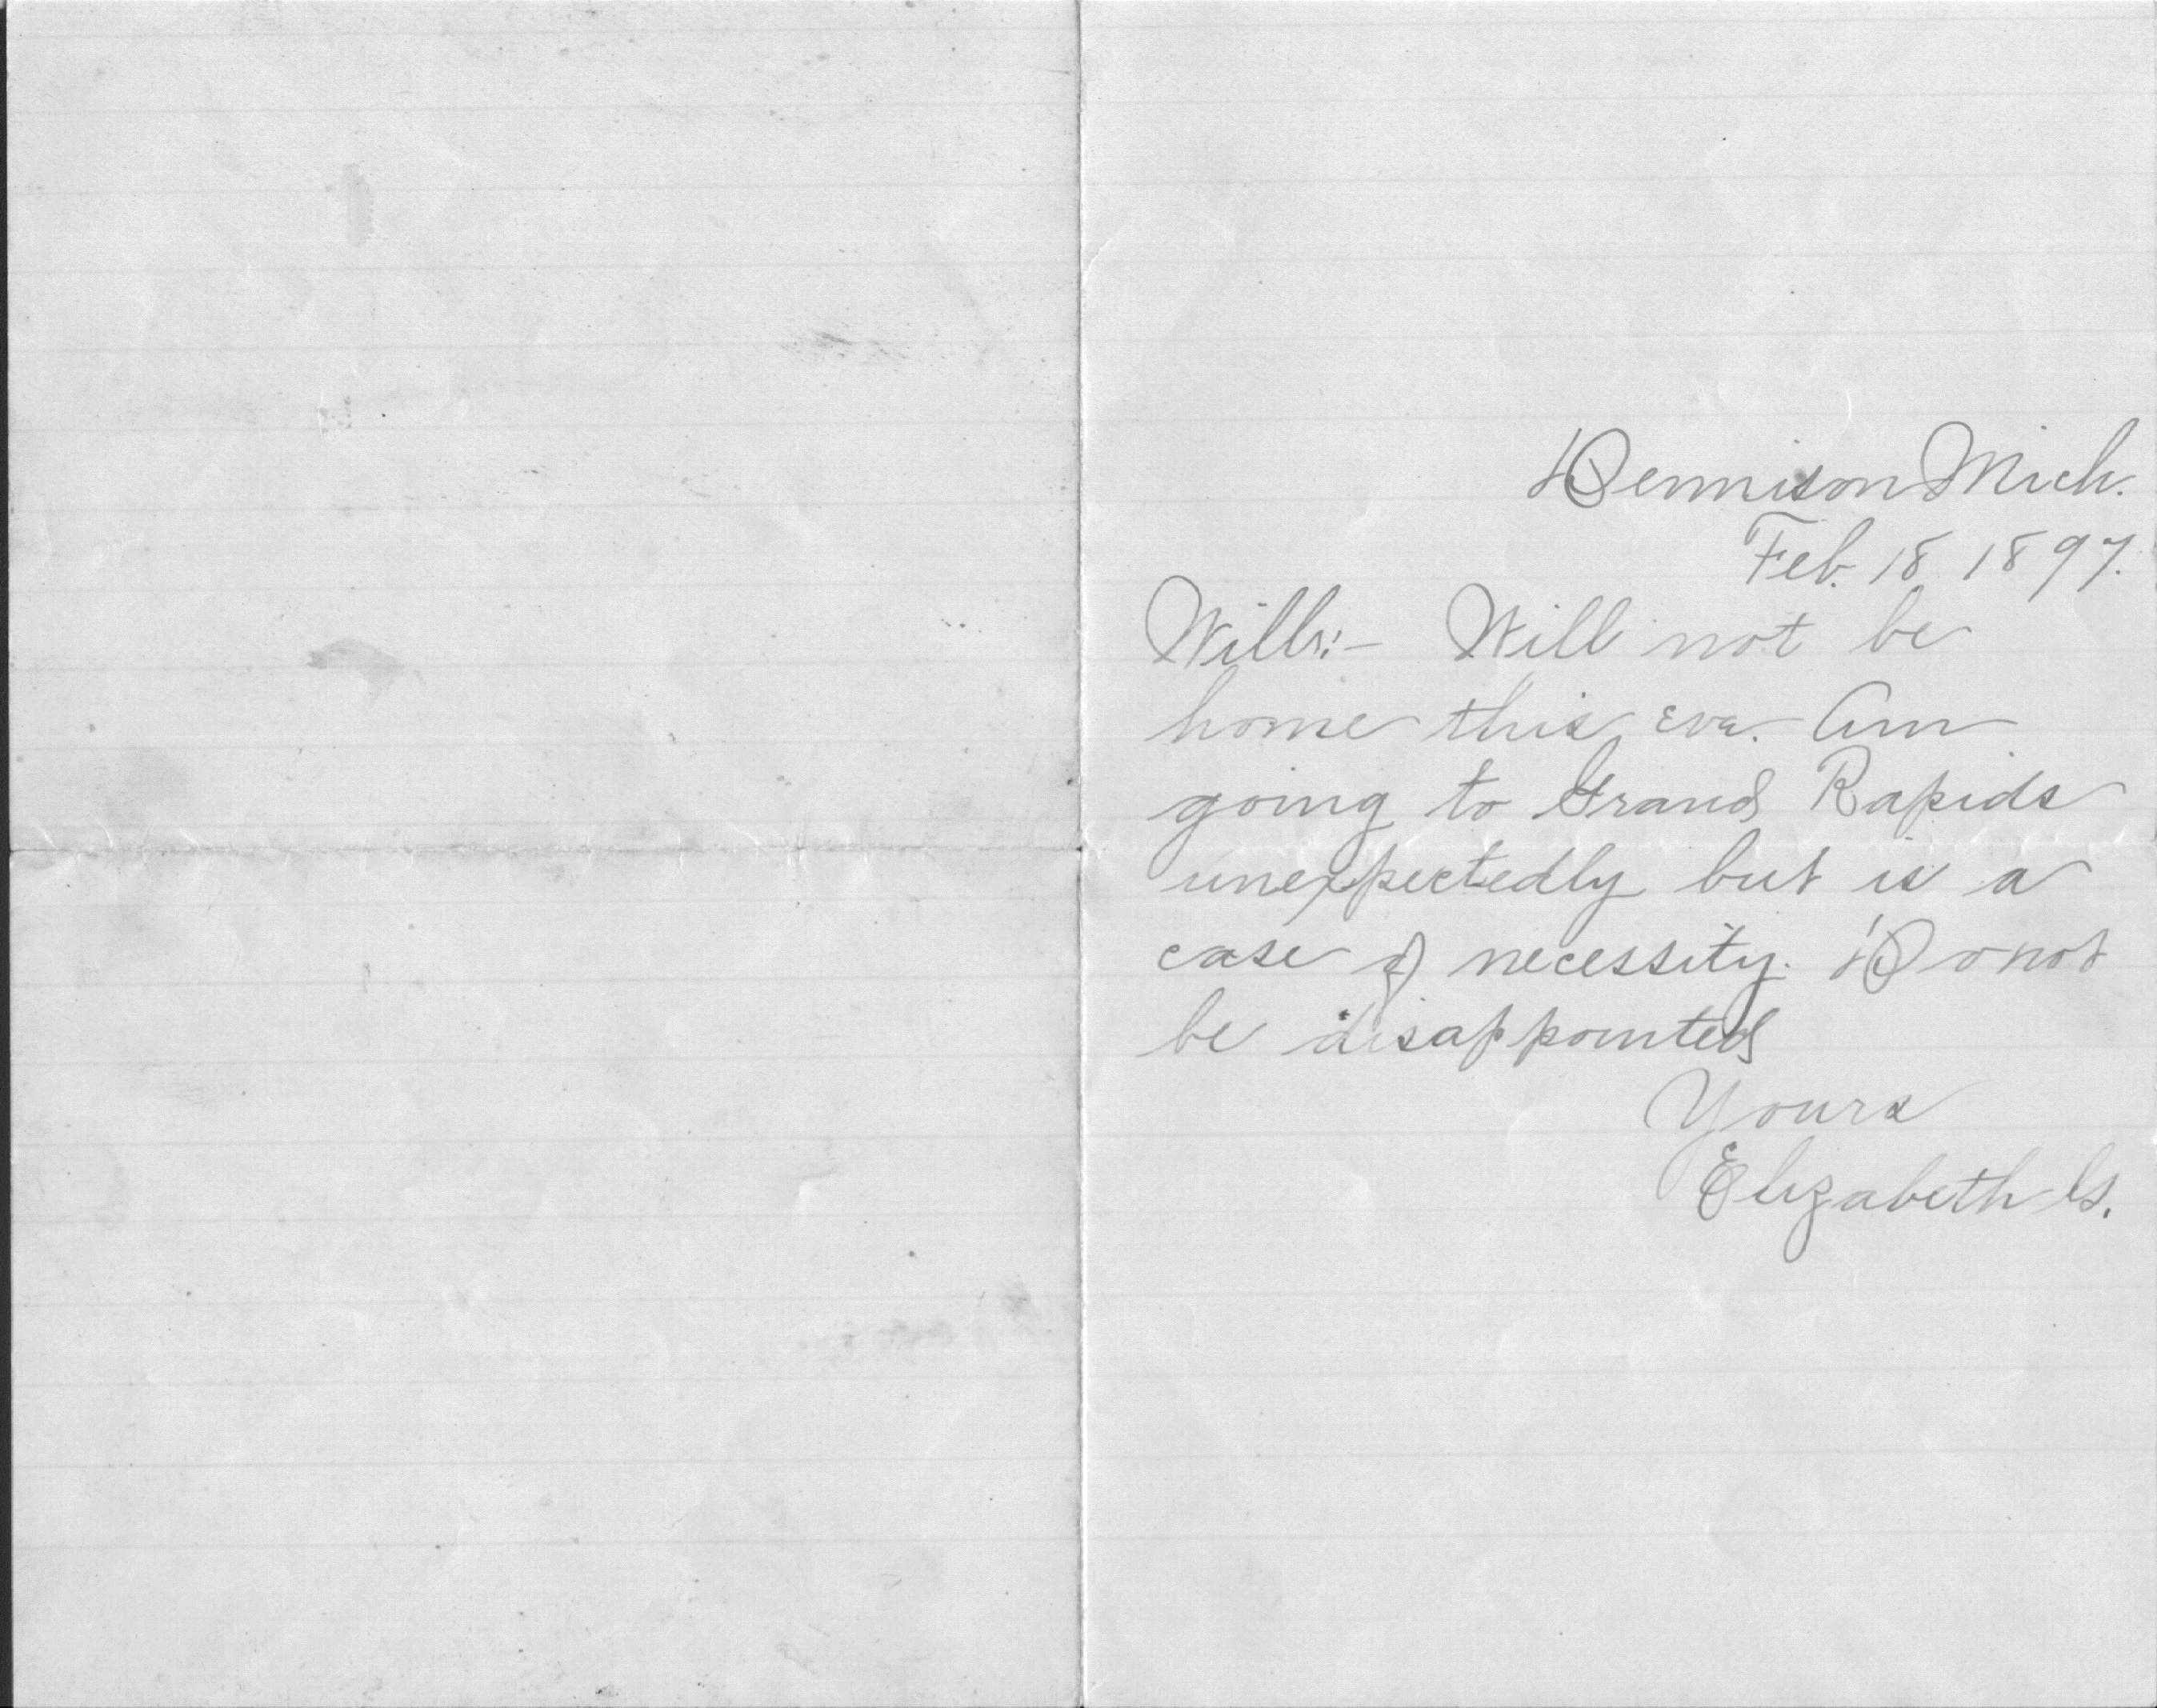 Dennison Mich.
Feb. 18 1897.
Will:- Will not be
home this eve. Am
going to Grand Rapids
unexpectedly but is a
case of necessity. Do not
be disappointed
Yours
Elizabeth